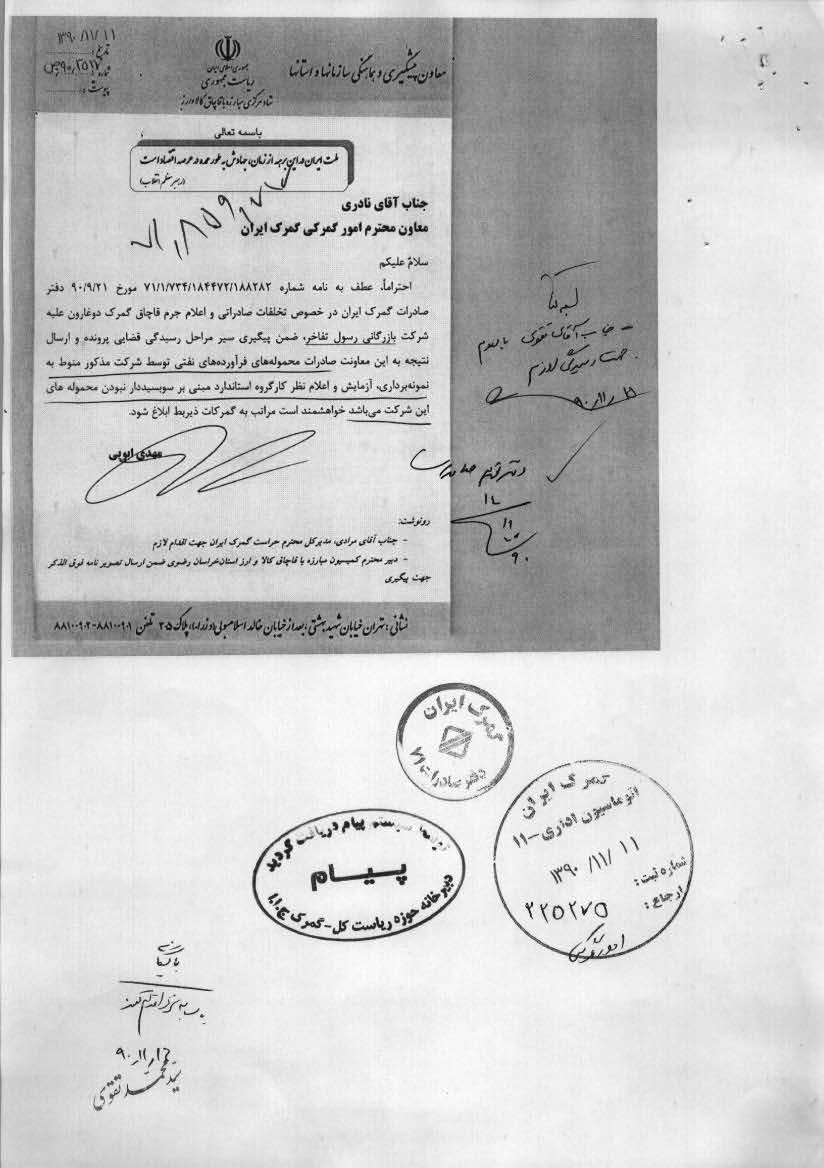 ۱۳۹۰/۱۱/۱۱
تاریخ:
شماره:
پیوست:
جمهوری اسلامی ایران
ریاست جمهوری
ستاد مرکزی مبارزه با قاچاق کالا و ارز
معاون پیشگیری و هماهنگی سازمانها و استانها
باسمه تعالی
ملت ایران در این برهه از زمان، جهادش به طور عمده در عرصه اقتصاد است
(رهبر معظم انقلاب)
جناب آقای نادری
معاون محترم امور گمرکی گمرک ایران
سلامٌ علیکم
احتراماً، عطف به نامه شماره ۷۱/۱/۷۳۴/۱۸۴۴۷۲/۱۸۸۲۸۲ مورخ ۹۰/۹/۲۱ دفتر
صادرات گمرک ایران در خصوص تخلفات صادراتی و اعلام جرم قاچاق گمرک دوغارون علیه
شرکت بازرگانی رسول تفاخر، ضمن پیگیری سیر مراحل رسیدگی قضایی پرونده و ارسال
نتیجه به این معاونت صادرات محموله‌های فرآورده‌های نفتی توسط شرکت مذکور منوط به
نمونه‌برداری، آزمایش و اعلام نظر کارگروه استاندارد مبنی بر سوبسیددار نبودن محموله های
این شرکت می‌باشد خواهشمند است مراتب به گمرکات ذیربط ابلاغ شود.
مهدی ابویی
رونوشت:
- جناب آقای مرادی، مدیرکل محترم حراست گمرک ایران جهت اقدام لازم
- دبیر محترم کمیسیون مبارزه با قاچاق کالا و ارز استان خراسان رضوی ضمن ارسال تصویر نامه فوق الذکر
جهت پیگیری
نشانی: تهران خیابان شهید بهشتی، بعد از خیابان خالد اسلامبولی (وزراء)، پلاک ۲۵ تلفن ۸۸۱۰۰۹۰۱-۸۸۱۰۰۹۰۲
جناب آقای تقوی
گمرک ایران
دفتر صادرات ۷۱
سیستم پیام دریافت گردید
پیام
دبیرخانه حوزه ریاست کل - گمرک ج.ا.ا
گمرک ایران
اتوماسیون اداری-۱۱
۱۳۹۰/۱۱/۱۱
شماره ثبت:
۲۲۵۲۷۵
ارجاع:
سید محمد تقوی